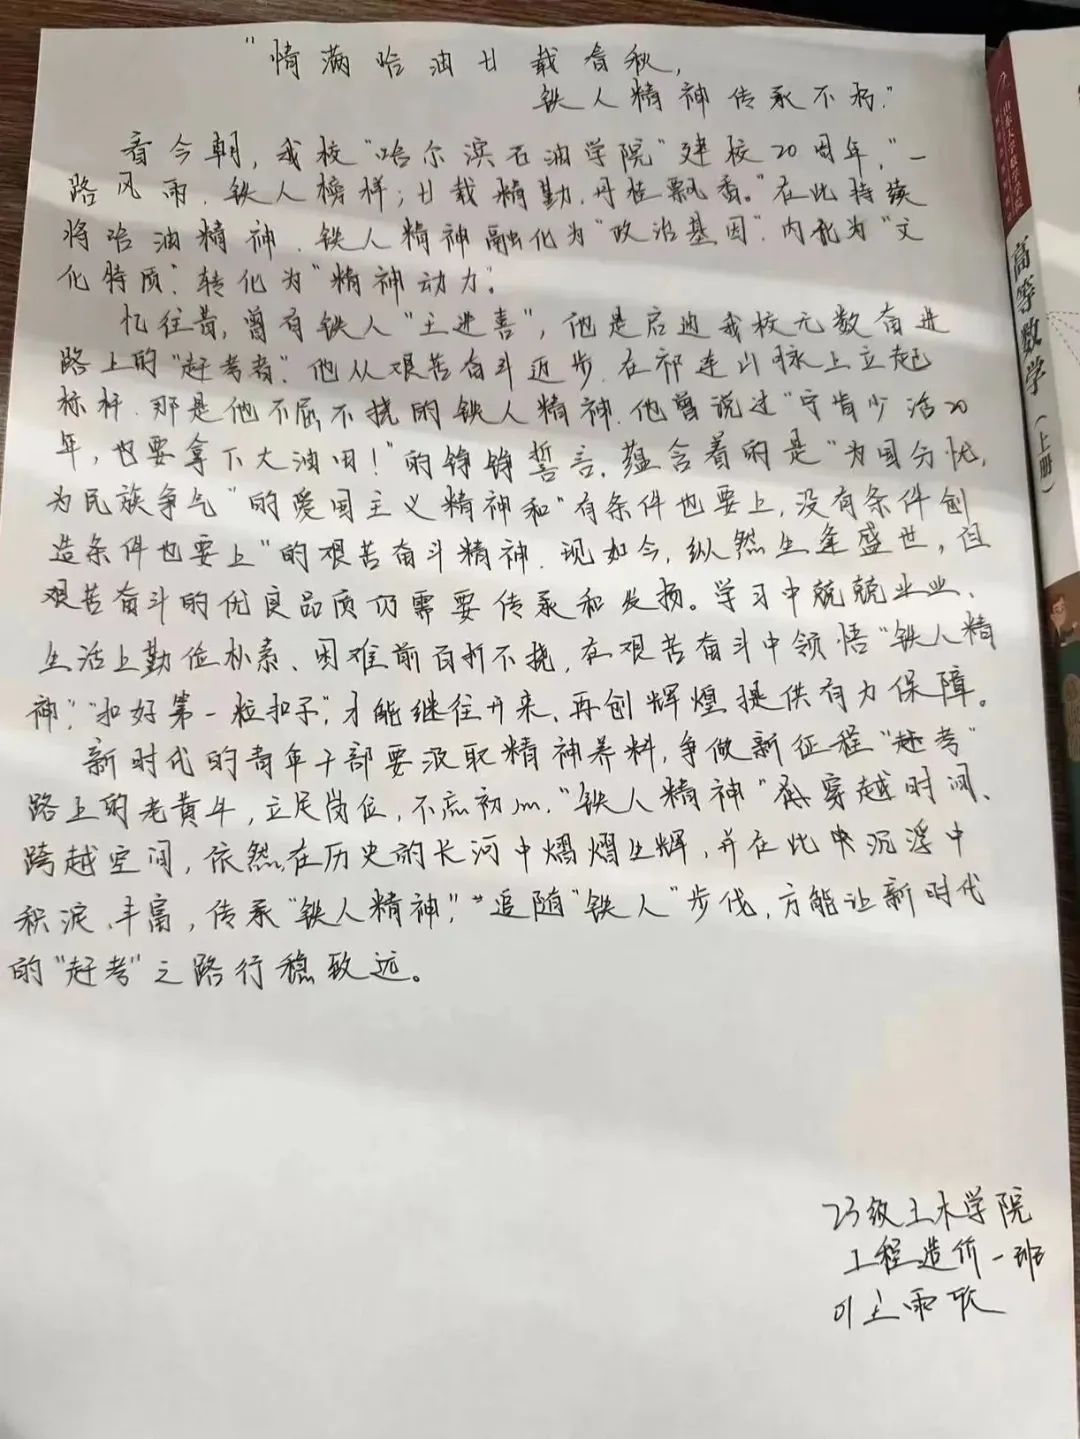 "情满哈油廿载春秋,
铁人精神传承不朽."
看今朝,我校"哈尔滨石油学院"建校20周年,"一
路风雨.铁人榜样;廿载精勤.丹桂飘香。"在此持续
将哈油精神.铁人精神融化为"政治基因".内化为"文
化特质".转化为"精神动力".
忆往昔,曾有铁人"王进喜",他是启迪我校无数奋进
路上的"赶考者".他从艰苦奋斗近步.在祁连山脉上立起
标杆.那是他不屈不挠的铁人精神.他曾说过"宁肯少活20
年,也要拿下大油田!"的铮铮誓言.蕴含着的是"为国分忧,
为民族争气"的爱国主义精神和"有条件也要上,没有条件创
造条件也要上"的艰苦奋斗精神.现如今,纵然生逢盛世,但
艰苦奋斗的优良品质仍需要传承和发扬。学习中兢兢业业、
生活上勤俭朴素、困难前百折不挠,在艰苦奋斗中领悟"铁人精
神","扣好第一粒扣子",才能继往开来、再创辉煌提供有力保障。
新时代的青年干部要汲取精神养料,争做新征程"赶考"
路上的老黄牛,立足岗位,不忘初心."铁人精神"穿越时间、
跨越空间,依然在历史的长河中熠熠生辉,并在此中沉浮中
积淀、丰富,传承"铁人精神","追随"铁人"步伐,方能让新时代
的"赶考"之路行稳致远。
23级土木学院
工程造价一班
雨
高等数学(上册)